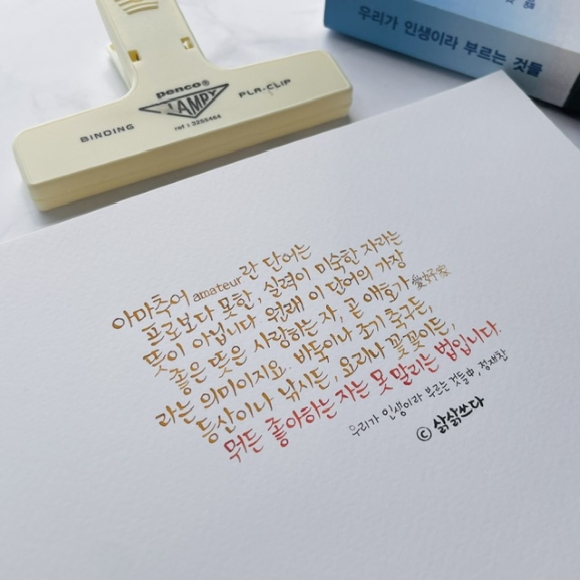 우리가 인생이라 부르는 것들
penco®
CLAMPY
BINDING
PLA-CLIP
아마추어 amateur란 단어는
프로보다 못한, 실력이 미숙한 자라는
뜻이 아닙니다. 원래 이 단어의 가장
좋은 뜻은 사랑하는 자, 곧 애호가 愛好家
라는 의미이지요. 바둑이나 조기 축구든,
등산이나 낚시든, 요리나 꽃꽂이든,
뭐든 좋아하는 자는 못 말리는 법입니다.
우리가 인생이라 부르는 것들中, 정재찬
© 삵삵쓰다